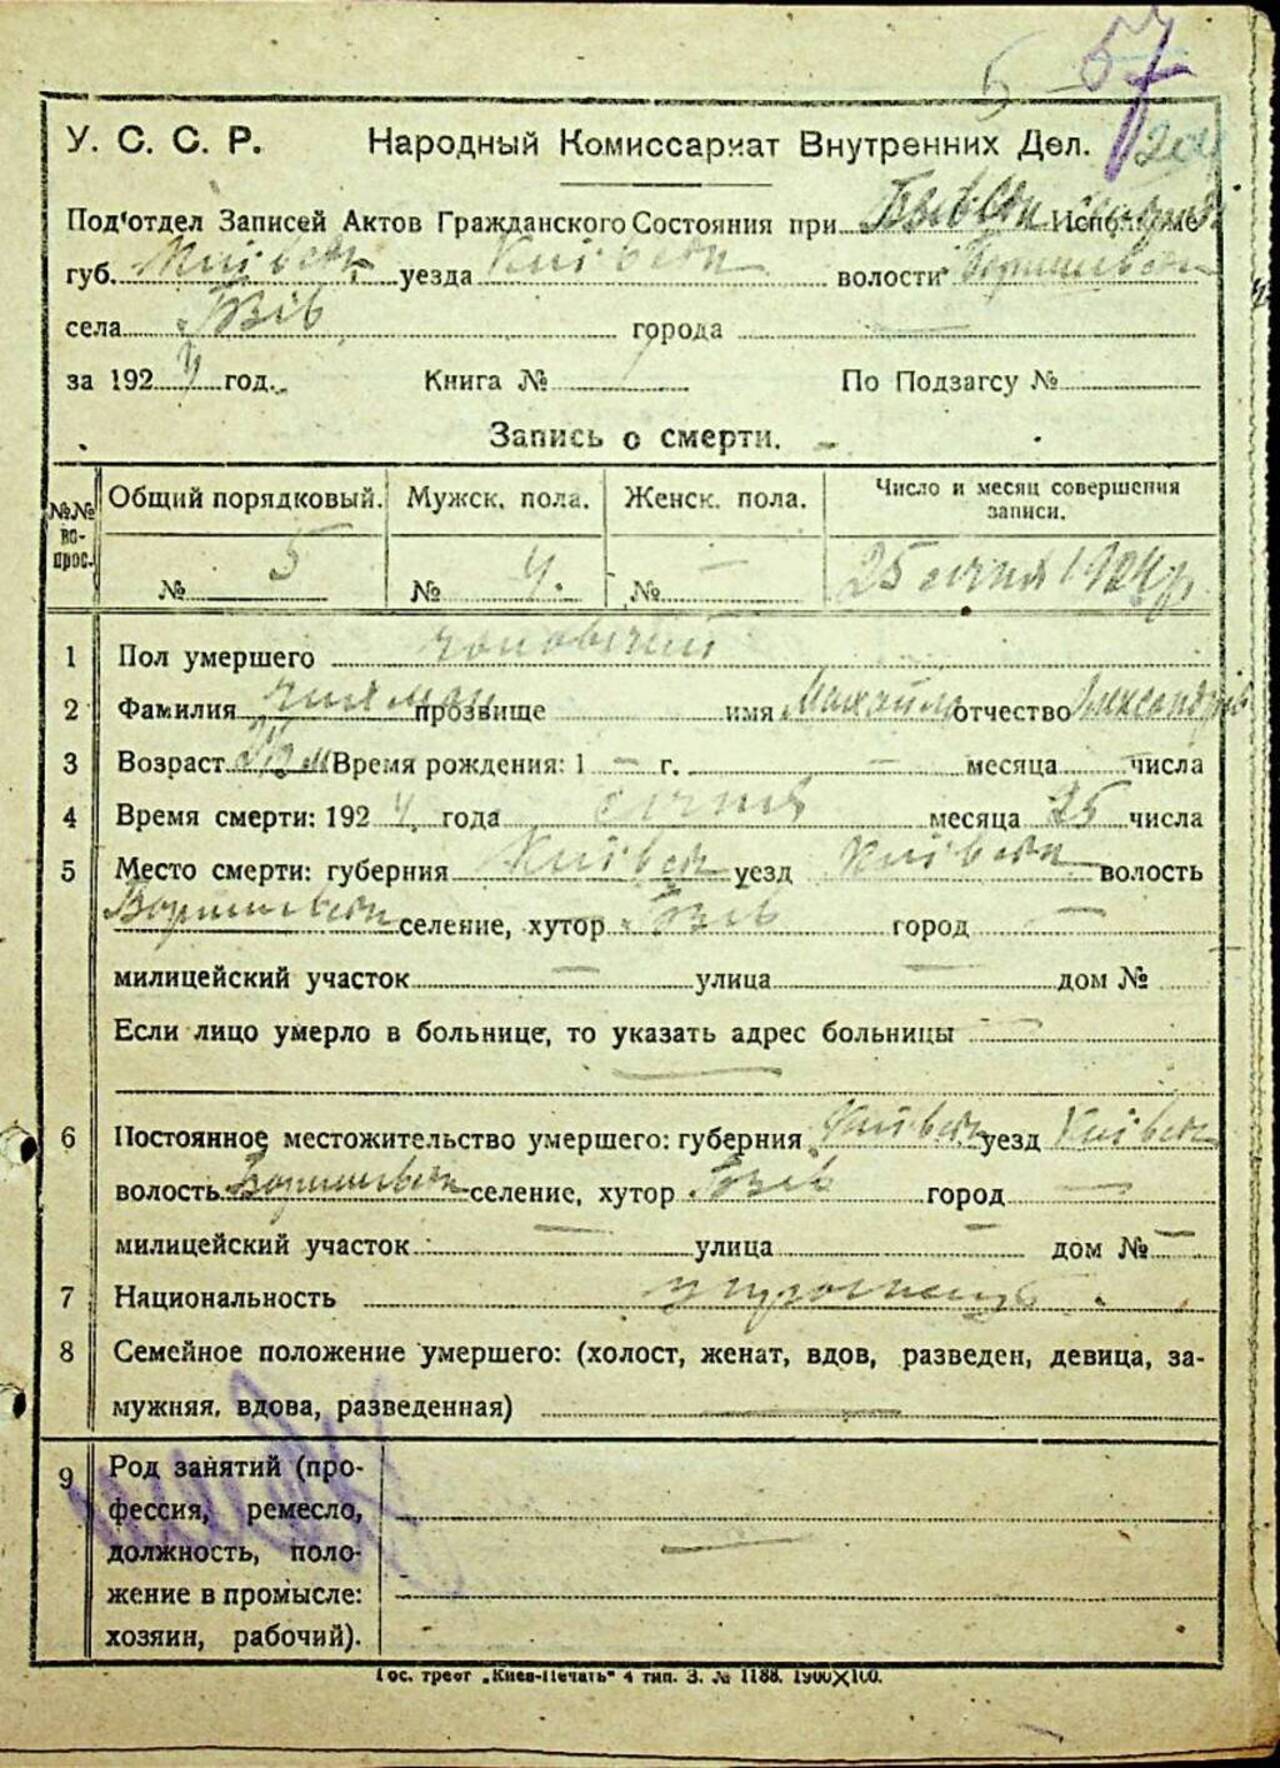 57
5
У. С. С. Р. Народный Комиссариат Внутренних Дел.
Под'отдел Записей Актов Гражданского Состояния при
губ. Київськ. уезда Київськ волости
села Гвів города —
за 1924 год. Книга № По Подзагсу №
Запись о смерти.
№№ вопрос. Общий порядковый. Мужск. пола. Женск. пола. Число и месяц совершения записи.
№ 5 № 4. № — 25 січня 1924 р.
1 Пол умершего чоловічий
2 Фамилия прозвище имя Михайло отчество Александрів
3 Возраст Время рождения: 1 — г. — месяца — числа
4 Время смерти: 1924 года січня месяца 25 числа
5 Место смерти: губерния Київськ уезд Київськ волость
селение, хутор Гвів город —
милицейский участок — улица — дом №
Если лицо умерло в больнице, то указать адрес больницы —
—
6 Постоянное местожительство умершего: губерния Київськ уезд Київськ
волость селение, хутор Гвів город —
милицейский участок — улица — дом № —
7 Национальность
8 Семейное положение умершего: (холост, женат, вдов, разведен, девица, за-
мужняя, вдова, разведенная) —
9 Род занятий (про-
фессия, ремесло,
должность, поло- —
жение в промысле:
хозяин, рабочий).
Гос. трест „Киев-Печать" 4 тип. З. № 1188. 1900×100.